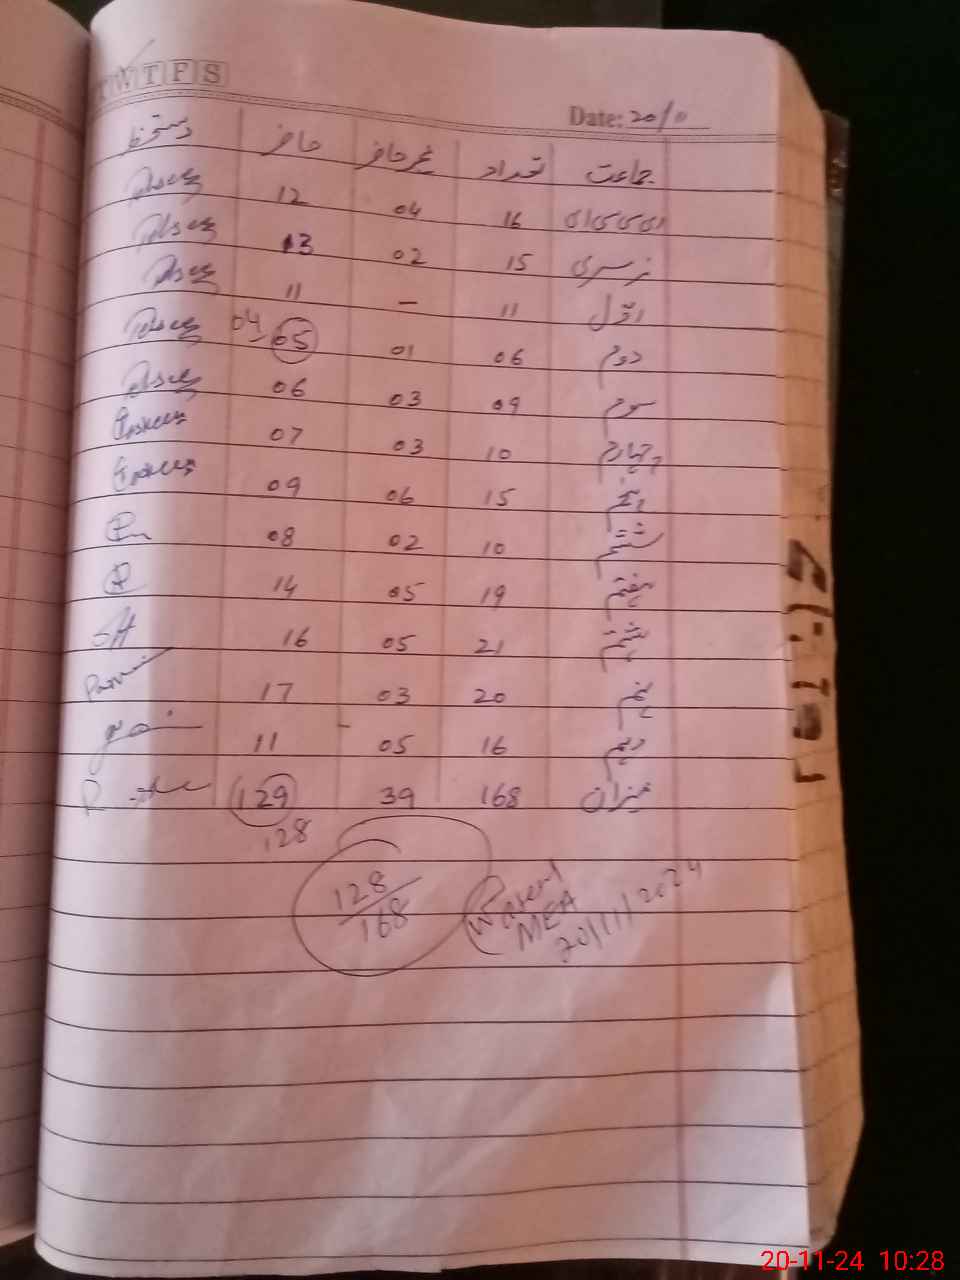 W T F S
Date: 20/11
جماعت تعداد غیرحاضر حاضر دستخط
ای سی سی ای 16 04 12
نرسری 15 02 13
اوّل 11 – 11
دوم 06 01 05 04
سوم 09 03 06
چہارم 10 03 07
پنجم 15 06 09
ششم 10 02 08
ہفتم 19 05 14
ہشتم 21 05 16
نہم 20 03 17
دہم 16 05 11
میزان 168 39 129
128
128/168
MEA
20/11/2024
20-11-24 10:28